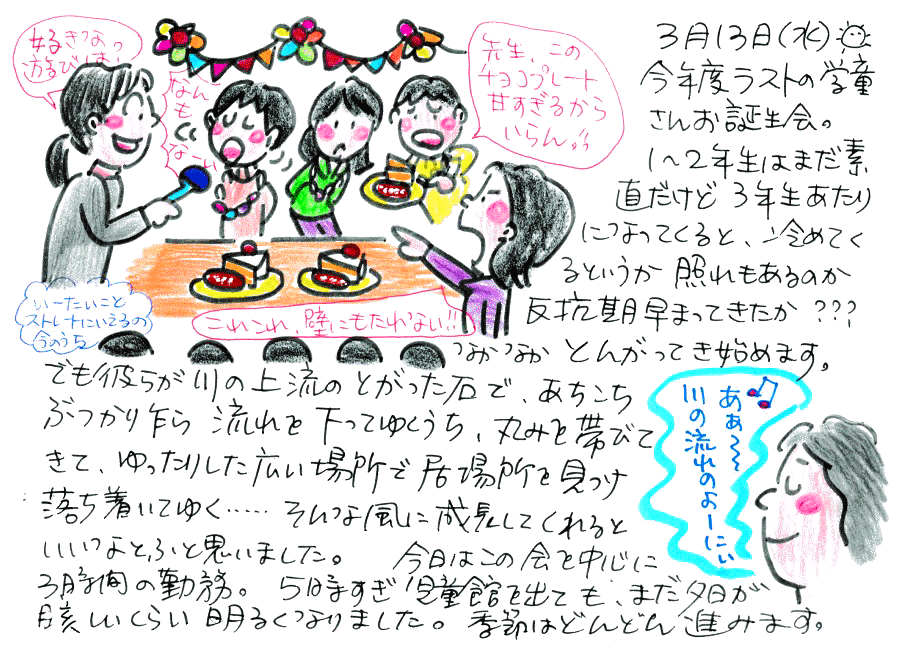 好きなっ
遊びは?
なんも
なーい
先生、この
チョコプレート
甘すぎるから
いらん。
いーたいこと
ストレートにいえるの
今のうち
これこれ、壁にもたれない!!
3月13日(水)
今年度ラストの学童
さんお誕生会。
1〜2年生はまだ素
直だけど 3年生あたり
になってくると、冷めてく
るというか 照れもあるのか
反抗期早まってきたか ???
なかなか とんがってき始めます。
でも彼らが川の上流のとがった石で、あちこち
ぶつかり乍ら 流れを下ってゆくうち、丸みを帯びて
きて、ゆったりした広い場所で居場所を見つけ
落ち着いてゆく…… そんな風に成長してくれると
いいなとふと思いました。 今日はこの会を中心に
3時間の勤務。 5時すぎ児童館を出ても、まだ夕日が
眩しいくらい明るくなりました。季節はどんどん進みます。
あぁ〜〜
川の流れのよーにぃ